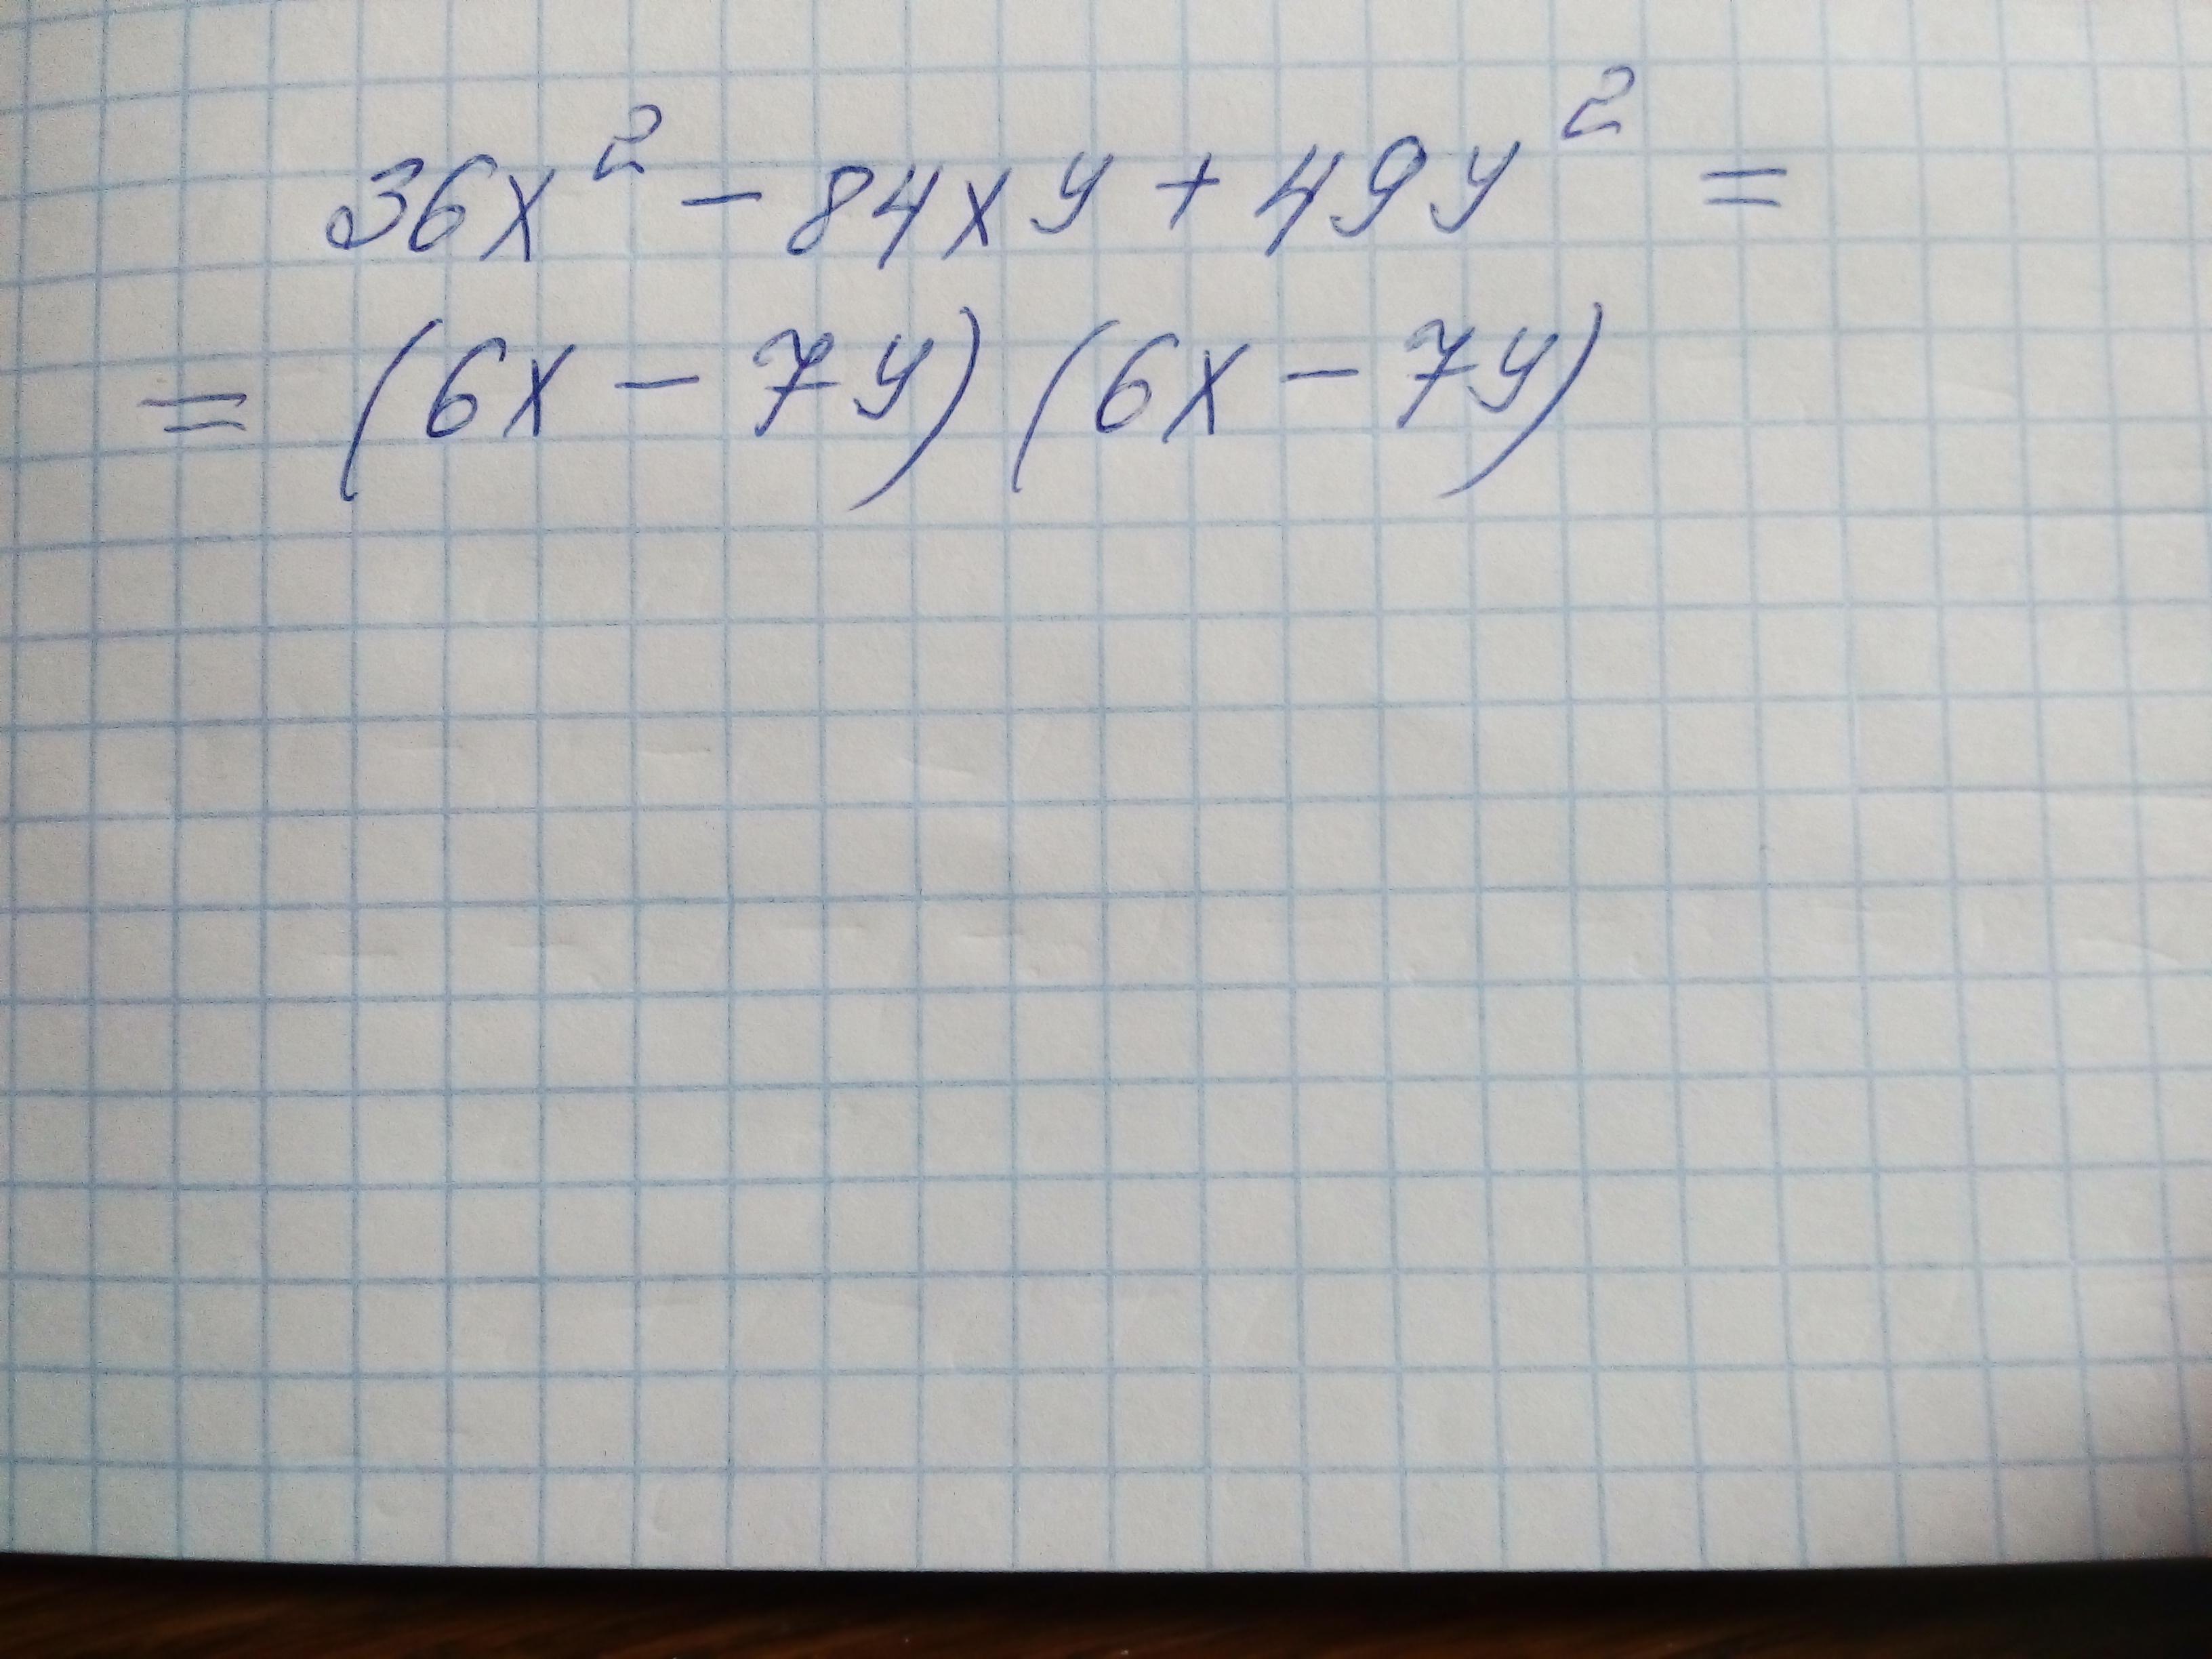 36x² - 84xy + 49y² =
= (6x - 7y) (6x - 7y)